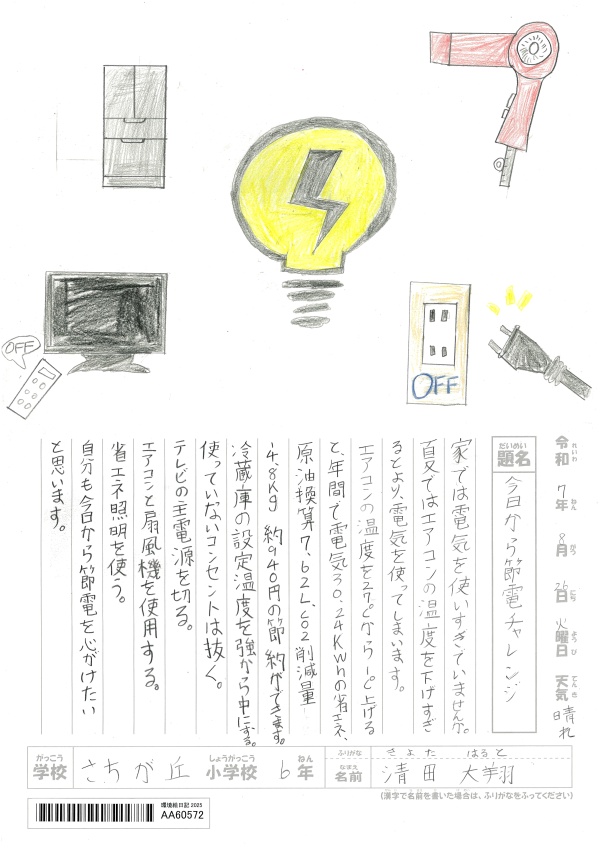 OFF
OFF
令和 れいわ 7年 ねん 8月 がつ 26日 にち 火曜日 ようび 天気 てんき 晴れ
題名 だいめい 今日から節電チャレンジ
家では電気を使いすぎていませんか。
夏ではエアコンの温度を下げすぎ
るとより、電気を使ってしまいます。
エアコンの温度を27℃から1℃上げる
と、年間で電気30.24kWhの省エネ、
原油換算7.62L、CO2削減量
14.8kg 約940円の節約ができます。
冷蔵庫の設定温度を強から中にする。
使っていないコンセントは抜く。
テレビの主電源を切る。
エアコンと扇風機を使用する。
省エネ照明を使う。
自分も今日から節電を心がけたい
と思います。
学校 がっこう さちが丘 小学校 しょうがっこう 6年 ねん
ふりがな きよた はると
名前 なまえ 清田 大翔
(漢字で名前を書いた場合は、ふりがなをふってください)
環境絵日記2025
AA60572